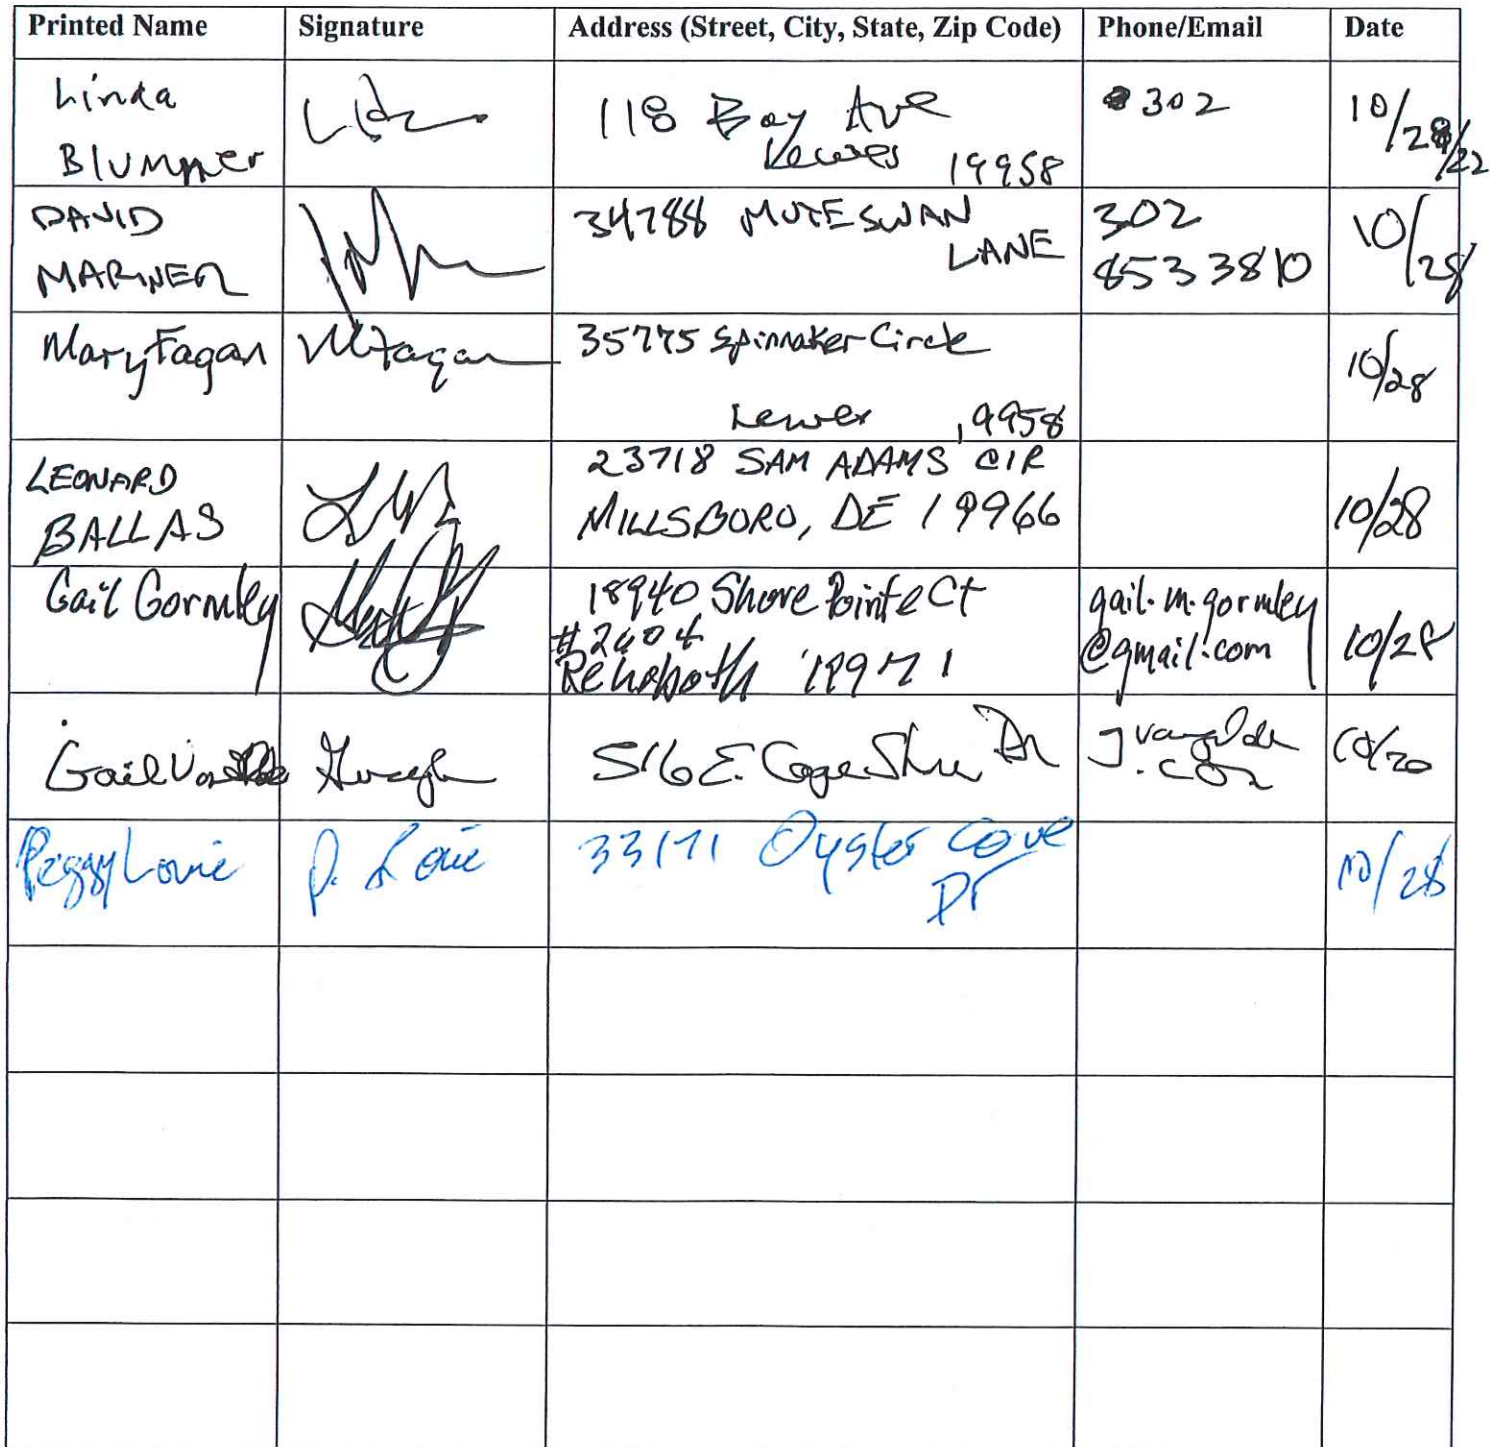 Printed Name Signature Address (Street, City, State, Zip Code) Phone/Email Date
Linda
Blummer
118 Bay Ave
Lewes 19958
302
10/28/22
DAVID
MARINER
34788 MUTE SWAN
LANE
302
853 3810
10/28
Mary Fagan
M Fagan
35775 Spinnaker Circle
Lewes 19958
10/28
LEONARD
BALLAS
23718 SAM ADAMS CIR
MILLSBORO, DE 19966
10/28
Gail Gormley
18940 Shore Pointe Ct
#2604
Rehoboth 19971
gail.m.gormley
@gmail.com
10/28
Gail
516 E. Cape Shores Dr
10/20
Peggy Louie
P. Louie
33171 Oyster Cove
Dr
10/28